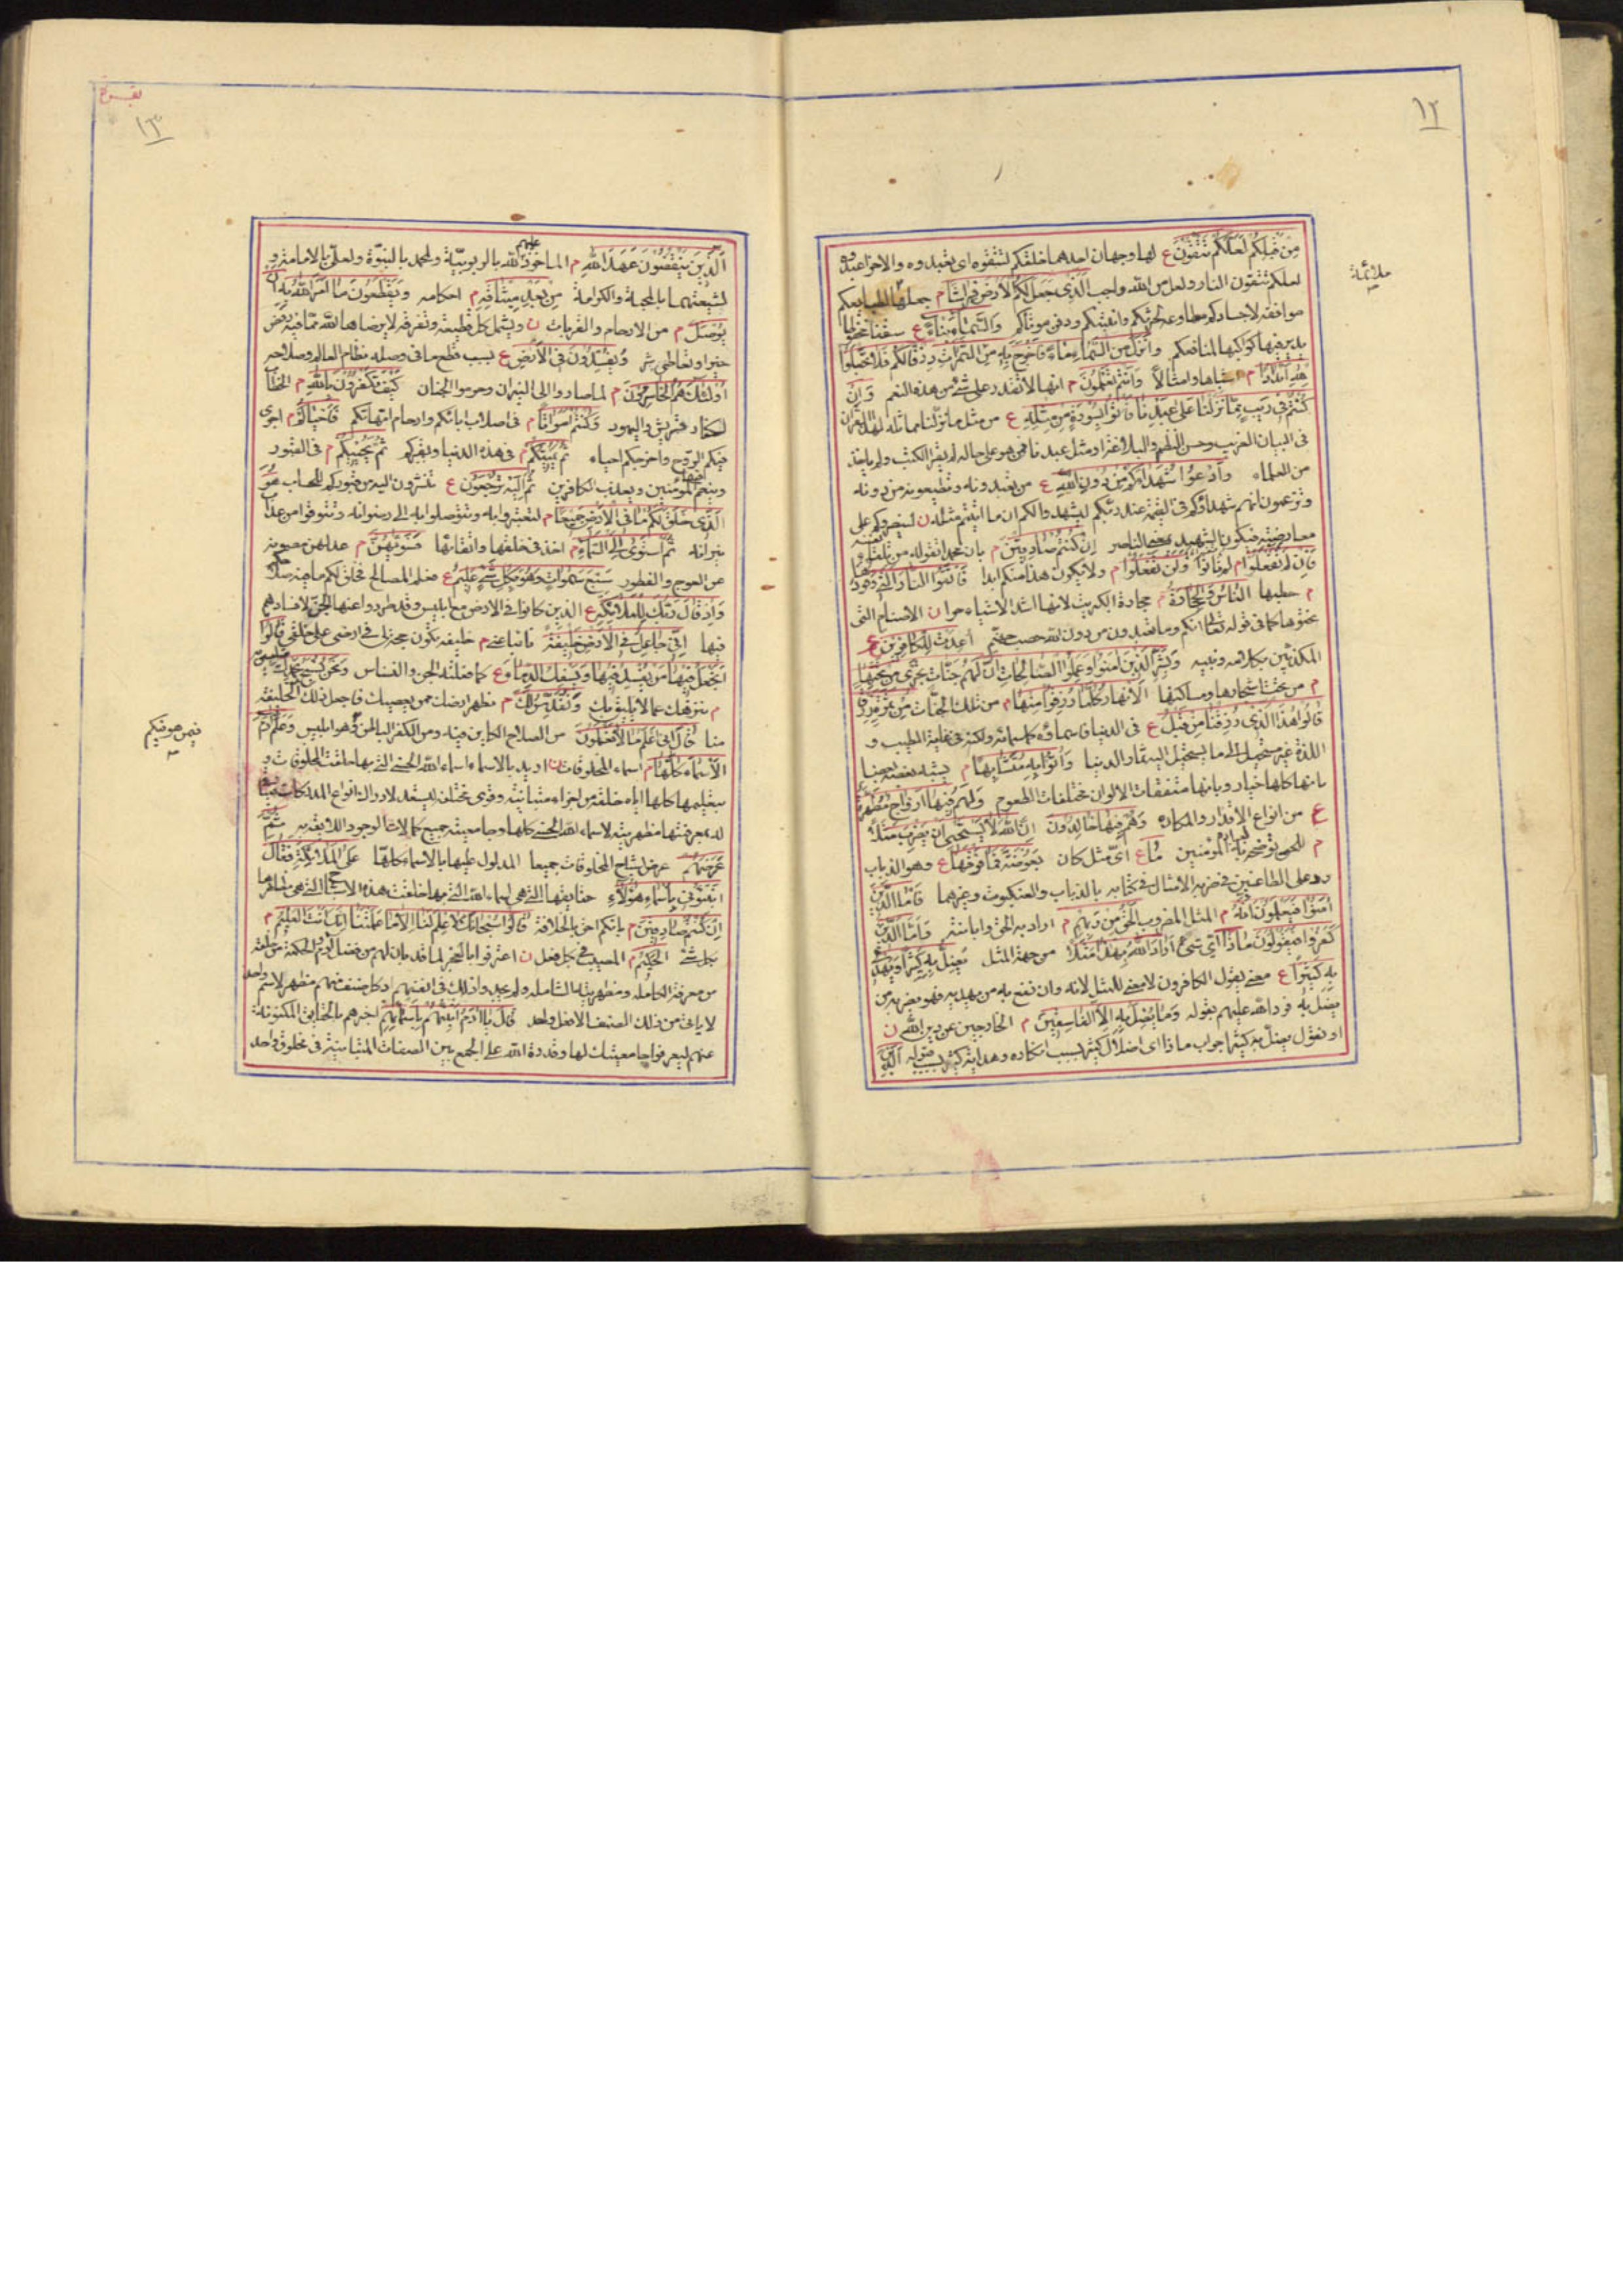 ١٢
مِنْ قَبْلِكُمْ لَعَلَّكُمْ تَتَّقُونَ ع لها وجهان احدهما خلقكم لتتقوه اى تعبدوه والاخر اعبدوه
لعلكم تتقون النار ولعل من الله واجب الَّذِى جَعَلَ لَكُمُ الْاَرْضَ فِرَاشًا م جعلها لطبايعكم
ملائمة
موافقة لاجسادكم مطاوعة لحرثكم وابنيتكم ودفن موتاكم وَالسَّمَاءَ بِنَاءً ع سقفا محفوظا
يدير فيها كواكبها لمنافعكم وَاَنْزَلَ مِنَ السَّمَاءِ مَاءً فَاَخْرَجَ بِهِ مِنَ الثَّمَرَاتِ رِزْقًا لَكُمْ فَلَا تَجْعَلُوا
لِلّٰهِ اَنْدَادًا م اشباها وامثالا وَاَنْتُمْ تَعْلَمُونَ م انها لا تقدر على شئ من هذه النعم وَاِنْ
كُنْتُمْ فِى رَيْبٍ مِمَّا نَزَّلْنَا عَلٰى عَبْدِنَا فَاْتُوا بِسُورَةٍ مِنْ مِثْلِهِ ع من مثل ما نزلنا مماثلة لهذا القران
فى البيان الغريب وحسن النظم والبلاغة او مثل عبدنا ممن هو على حاله لم يقرء الكتب ولم ياخذ
من العلماء وَادْعُوا شُهَدَاءَكُمْ مِنْ دُونِ اللّٰهِ ع من تعبدونه وتطيعونه من دونه
وتزعمون انهم شهداؤكم فى القيمة عند ربكم ليشهدوا لكم ان ما اتيتم مثله ن لينصروكم على
معارضته فيكون الشهيد بمعنى الناصر اِنْ كُنْتُمْ صَادِقِينَ م بان محمدا تقوله من تلقاء نفسه
فَاِنْ لَمْ تَفْعَلُوا م لم تاتوا وَلَنْ تَفْعَلُوا م ولا يكون هذا منكم ابدا فَاتَّقُوا النَّارَ الَّتِى وَقُودُهَا
م حطبها النَّاسُ وَالْحِجَارَةُ م حجارة الكبريت لانها اشد الاشياء حرا ن الاصنام التى
نحتوها كما فى قوله تعالى انكم وما تعبدون من دون الله حصب جهنم اُعِدَّتْ لِلْكَافِرِينَ ع
المكذبين بكلامه ونبيه وَبَشِّرِ الَّذِينَ اٰمَنُوا وَعَمِلُوا الصَّالِحَاتِ اَنَّ لَهُمْ جَنَّاتٍ تَجْرِى مِنْ تَحْتِهَا
م من تحت اشجارها ومساكنها الْاَنْهَارُ كُلَّمَا رُزِقُوا مِنْهَا م من تلك الجنات مِنْ ثَمَرَةٍ رِزْقًا
قَالُوا هٰذَا الَّذِى رُزِقْنَا مِنْ قَبْلُ ع فى الدنيا فاسماؤه كاسمائه ولكنه فى غاية الطيب و
اللذة غير مستحيل الى ما يستحيل اليه ثمار الدنيا وَاُتُوا بِهِ مُتَشَابِهًا م يشبه بعضه بعضا
بانها كلها خيار وبانها متفقات الالوان مختلفات الطعوم وَلَهُمْ فِيهَا اَزْوَاجٌ مُطَهَّرَةٌ
ع من انواع الاقذار والمكاره وَهُمْ فِيهَا خَالِدُونَ اِنَّ اللّٰهَ لَا يَسْتَحْيِى اَنْ يَضْرِبَ مَثَلًا
م للحق يوضحه به لعباده المؤمنين مَا ع اىّ مثل كان بَعُوضَةً فَمَا فَوْقَهَا ع وهو الذباب
رد على الطاعنين فى ضربه الامثال فى كتابه بالذباب والعنكبوت وغيرهما فَاَمَّا الَّذِينَ
اٰمَنُوا فَيَعْلَمُونَ اَنَّهُ م المثل المضروب الْحَقُّ مِنْ رَبِّهِمْ م اراد به الحق وابانته وَاَمَّا الَّذِينَ
كَفَرُوا فَيَقُولُونَ مَاذَا اىّ شئ ع اَرَادَ اللّٰهُ بِهٰذَا مَثَلًا من جهة المثل يُضِلُّ بِهِ كَثِيرًا وَيَهْدِى
بِهِ كَثِيرًا ع معنى يقول الكافرون لا معنى للمثل لانه وان نفع به من يهديه فهو يضر به من
يضل به فرد الله عليهم بقوله وَمَا يُضِلُّ بِهِ اِلَّا الْفَاسِقِينَ م الخارجين عن دين الله ن
او نقول يضل به كثيرا جواب ماذا اى اضلال كثير بسبب انكاره وهداية كثير بسبب قبوله اَلَّذِينَ
١٣
اَلَّذِينَ يَنْقُضُونَ عَهْدَ اللّٰهِ م الماخوذ عليهم لله بالربوبيّة ولمحمد بالنبوّة ولعلىّ بالامامة و
لشيعتهما بالمحبة والكرامة مِنْ بَعْدِ مِيثَاقِهِ م احكامه وَيَقْطَعُونَ مَا اَمَرَ اللّٰهُ بِهِ اَنْ
يُوصَلَ م من الارحام والقرابات ن ويشمل كل قطيعة وتفرقة لا يرضاها الله مما فيه رفض
خير او تعاطى شر وَيُفْسِدُونَ فِى الْاَرْضِ ع بسبب قطع ما فى وصله نظام العالم وصلاحه
اُولٰئِكَ هُمُ الْخَاسِرُونَ م لما صاروا الى النيران وحرموا الجنان كَيْفَ تَكْفُرُونَ بِاللّٰهِ م الخطاب
لكفار قريش واليهود وَكُنْتُمْ اَمْوَاتًا م فى اصلاب ابائكم وارحام امهاتكم فَاَحْيَاكُمْ م اجرى
فيكم الروح واخرجكم احياء ثُمَّ يُمِيتُكُمْ م فى هذه الدنيا ويقبركم ثُمَّ يُحْيِيكُمْ م فى القبور
وينعم فيها المؤمنين ويعذب الكافرين ثُمَّ اِلَيْهِ تُرْجَعُونَ ع تنشرون اليه من قبوركم للحساب هُوَ
الَّذِى خَلَقَ لَكُمْ مَا فِى الْاَرْضِ جَمِيعًا م لتعتبروا به وتتوصلوا به الى رضوانه وتتوقوا من عذاب
نيرانه ثُمَّ اسْتَوٰى اِلَى السَّمَاءِ م اخذ فى خلقها واتقانها فَسَوّٰيهُنَّ م عدلهن مصونة
عن العوج والفطور سَبْعَ سَمٰوَاتٍ وَهُوَ بِكُلِّ شَىْءٍ عَلِيمٌ ع فعلم المصالح فخلق لكم ما فيه صلاحكم
وَاِذْ قَالَ رَبُّكَ لِلْمَلٰئِكَةِ ع الذين كانوا فى الارض مع ابليس وقد طردوا عنها الجن لافسادهم
فيها اِنِّى جَاعِلٌ فِى الْاَرْضِ خَلِيفَةً نائبا عنى م خليفة تكون حجة لى فى ارضى على خلقى قَالُوا
اَتَجْعَلُ فِيهَا مَنْ يُفْسِدُ فِيهَا وَيَسْفِكُ الدِّمَاءَ ع كما فعلته الجن والنسناس وَنَحْنُ نُسَبِّحُ بِحَمْدِكَ
م ننزهك عما لا يليق بك وَنُقَدِّسُ لَكَ م نطهر ارضك ممن يعصيك فاجعل ذلك الخليفة
منا قَالَ اِنِّى اَعْلَمُ مَا لَا تَعْلَمُونَ من الصلاح الكاين فيه ومن الكفر الباطن فى وهو ابليس وَعَلَّمَ اٰدَمَ
فيمن هو فيكم
الْاَسْمَاءَ كُلَّهَا م اسماء المخلوقات ن اريد بالاسماء اسماء الله الحسنى التى بها خلقت المخلوقات و
بتعليمها كلها اياه خلقته من اجزاء متباينة وقوى مختلفة ليستعد لادراك انواع المدركات
لمعرفتها مظهريته لاسماء الله الحسنى كلها وجامعيته جميع كمالات الوجود اللايقة به ثُمَّ
عَرَضَهُمْ عرض اشباح المخلوقات جميعا المدلول عليها بالاسماء كلها عَلَى الْمَلٰئِكَةِ فَقَالَ
اَنْبِئُونِى بِاَسْمَاءِ هٰؤُلَاءِ حقايقها التى هى اسماء الله التى بها خلقت هذه الاشباح التى هى مظاهرها
اِنْ كُنْتُمْ صَادِقِينَ م بانكم احق بالخلافة قَالُوا سُبْحَانَكَ لَا عِلْمَ لَنَا اِلَّا مَا عَلَّمْتَنَا اِنَّكَ اَنْتَ الْعَلِيمُ م
بكل شئ الْحَكِيمُ م المصيب فى كل فعل ن اعترفوا بالعجز لما قد بان لهم من فضل ادم والحكمة فى خلقه
من معرفته الكاملة ومظهريته الشاملة ولم يجدوا ذلك فى انفسهم اذ كل صنف منهم مظهر لاسم واحد
لا ياتى من ذلك الصنف الا فعل واحد قَالَ يَا اٰدَمُ اَنْبِئْهُمْ بِاَسْمَائِهِمْ اخبرهم بالحقايق المكنونة
عنهم ليعرفوا جامعيتك لها وقدرة الله على الجمع بين الصفات المتباينة فى مخلوق واحد